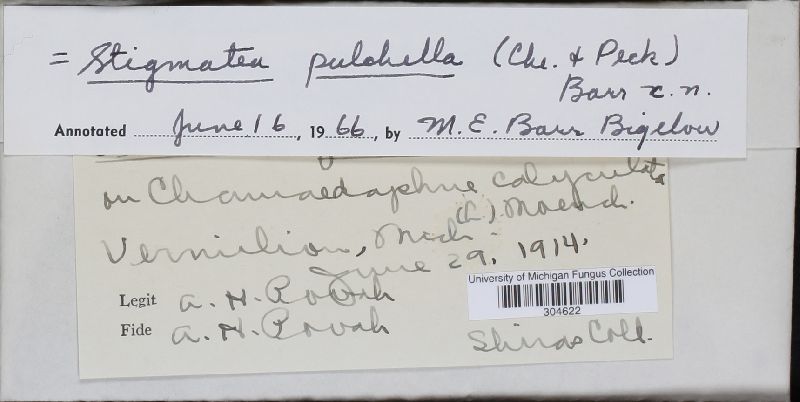 = Stigmatea pulchella (Cke. & Peck)
Barr c.n.
Annotated June 16, 1966, by M.E. Barr Bigelow
on Chamaedaphne calyculata
(L.) Moench.
Vermilion, Mich.
June 29, 1914.
Legit A. H. Povah
Fide A. H. Povah
University of Michigan Fungus Collection
304622
Shiras Coll.